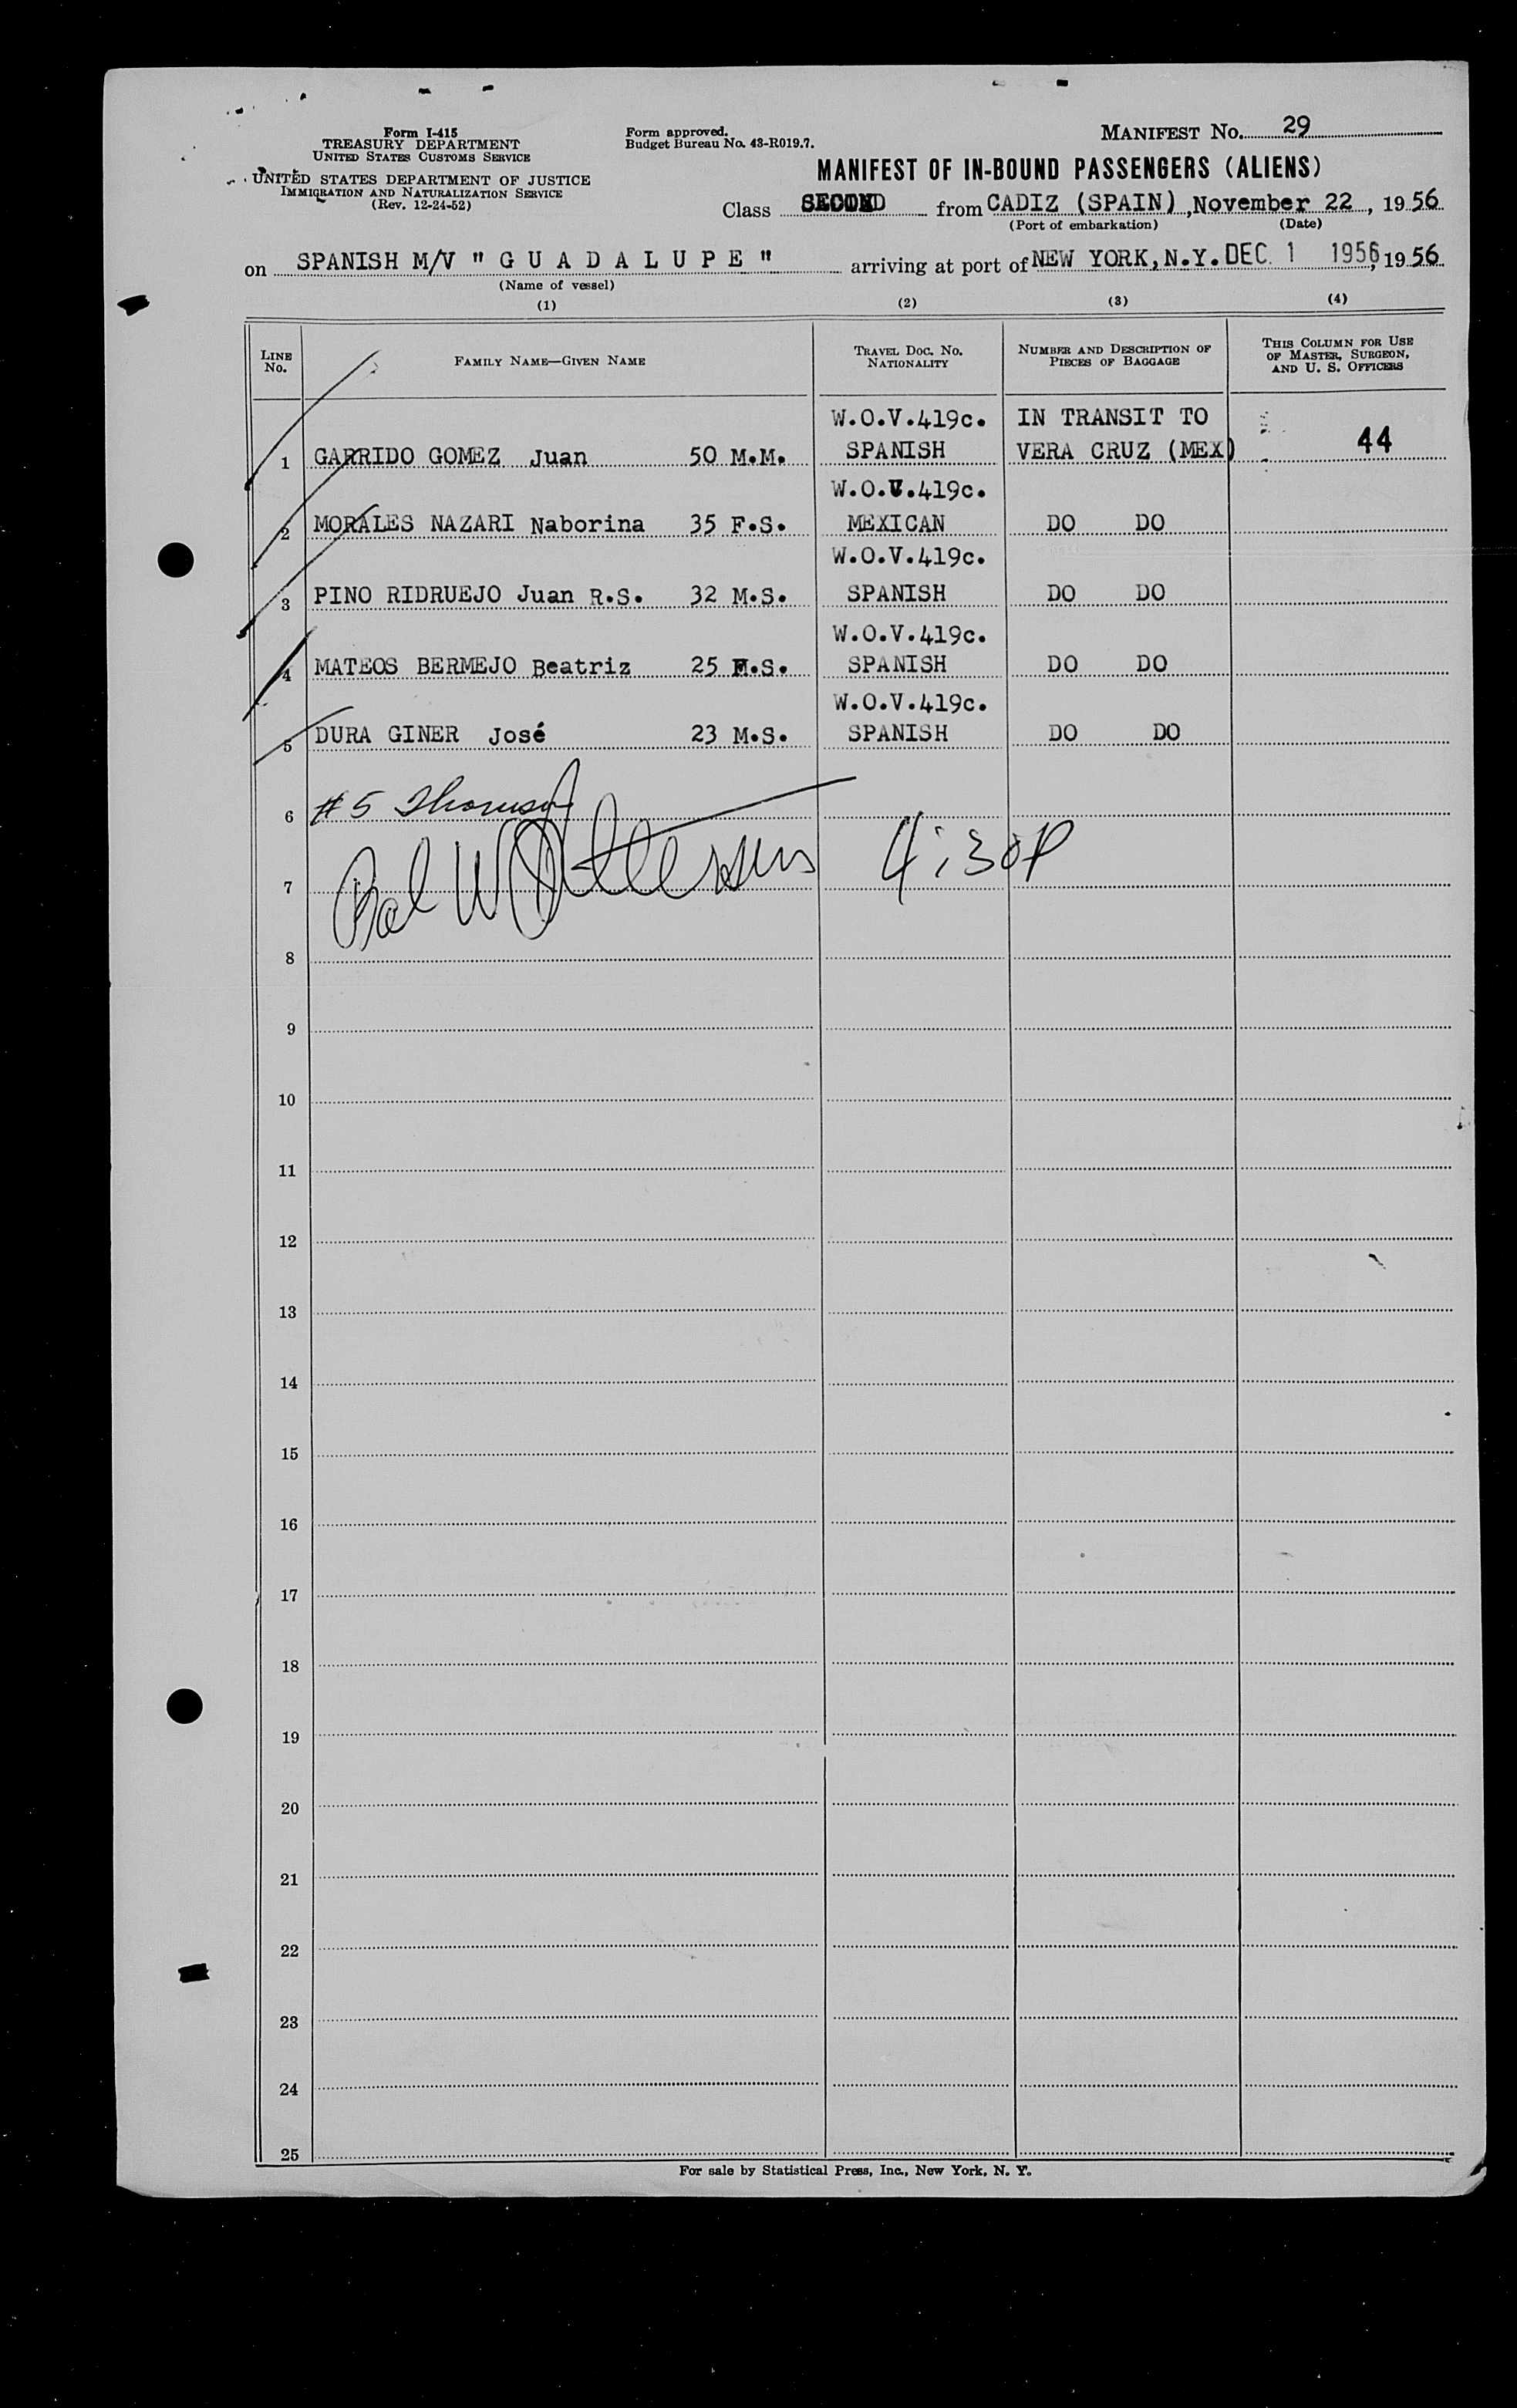 Form I-415
TREASURY DEPARTMENT
UNITED STATES CUSTOMS SERVICE
UNITED STATES DEPARTMENT OF JUSTICE
IMMIGRATION AND NATURALIZATION SERVICE
(Rev. 12-24-52)
Form approved.
Budget Bureau No. 43-R019.7.
MANIFEST No. 29
MANIFEST OF IN-BOUND PASSENGERS (ALIENS)
Class SECOND from CADIZ (SPAIN), November 22, 1956
(Port of embarkation) (Date)
on SPANISH M/V " G U A D A L U P E " arriving at port of NEW YORK, N.Y. DEC. 1 1956, 1956
(Name of vessel)
(1) (2) (3) (4)
LINE No. FAMILY NAME—GIVEN NAME TRAVEL DOC. NO. NATIONALITY NUMBER AND DESCRIPTION OF PIECES OF BAGGAGE THIS COLUMN FOR USE OF MASTER, SURGEON, AND U. S. OFFICERS
W.O.V.419c. IN TRANSIT TO
1 GARRIDO GOMEZ Juan 50 M.M. SPANISH VERA CRUZ (MEX) 44
W.O.V.419c.
2 MORALES NAZARI Naborina 35 F.S. MEXICAN DO DO
W.O.V.419c.
3 PINO RIDRUEJO Juan R.S. 32 M.S. SPANISH DO DO
W.O.V.419c.
4 MATEOS BERMEJO Beatriz 25 F.S. SPANISH DO DO
W.O.V.419c.
5 DURA GINER José 23 M.S. SPANISH DO DO
6 #5
7 4:30P
8
9
10
11
12
13
14
15
16
17
18
19
20
21
22
23
24
25
For sale by Statistical Press, Inc., New York, N. Y.